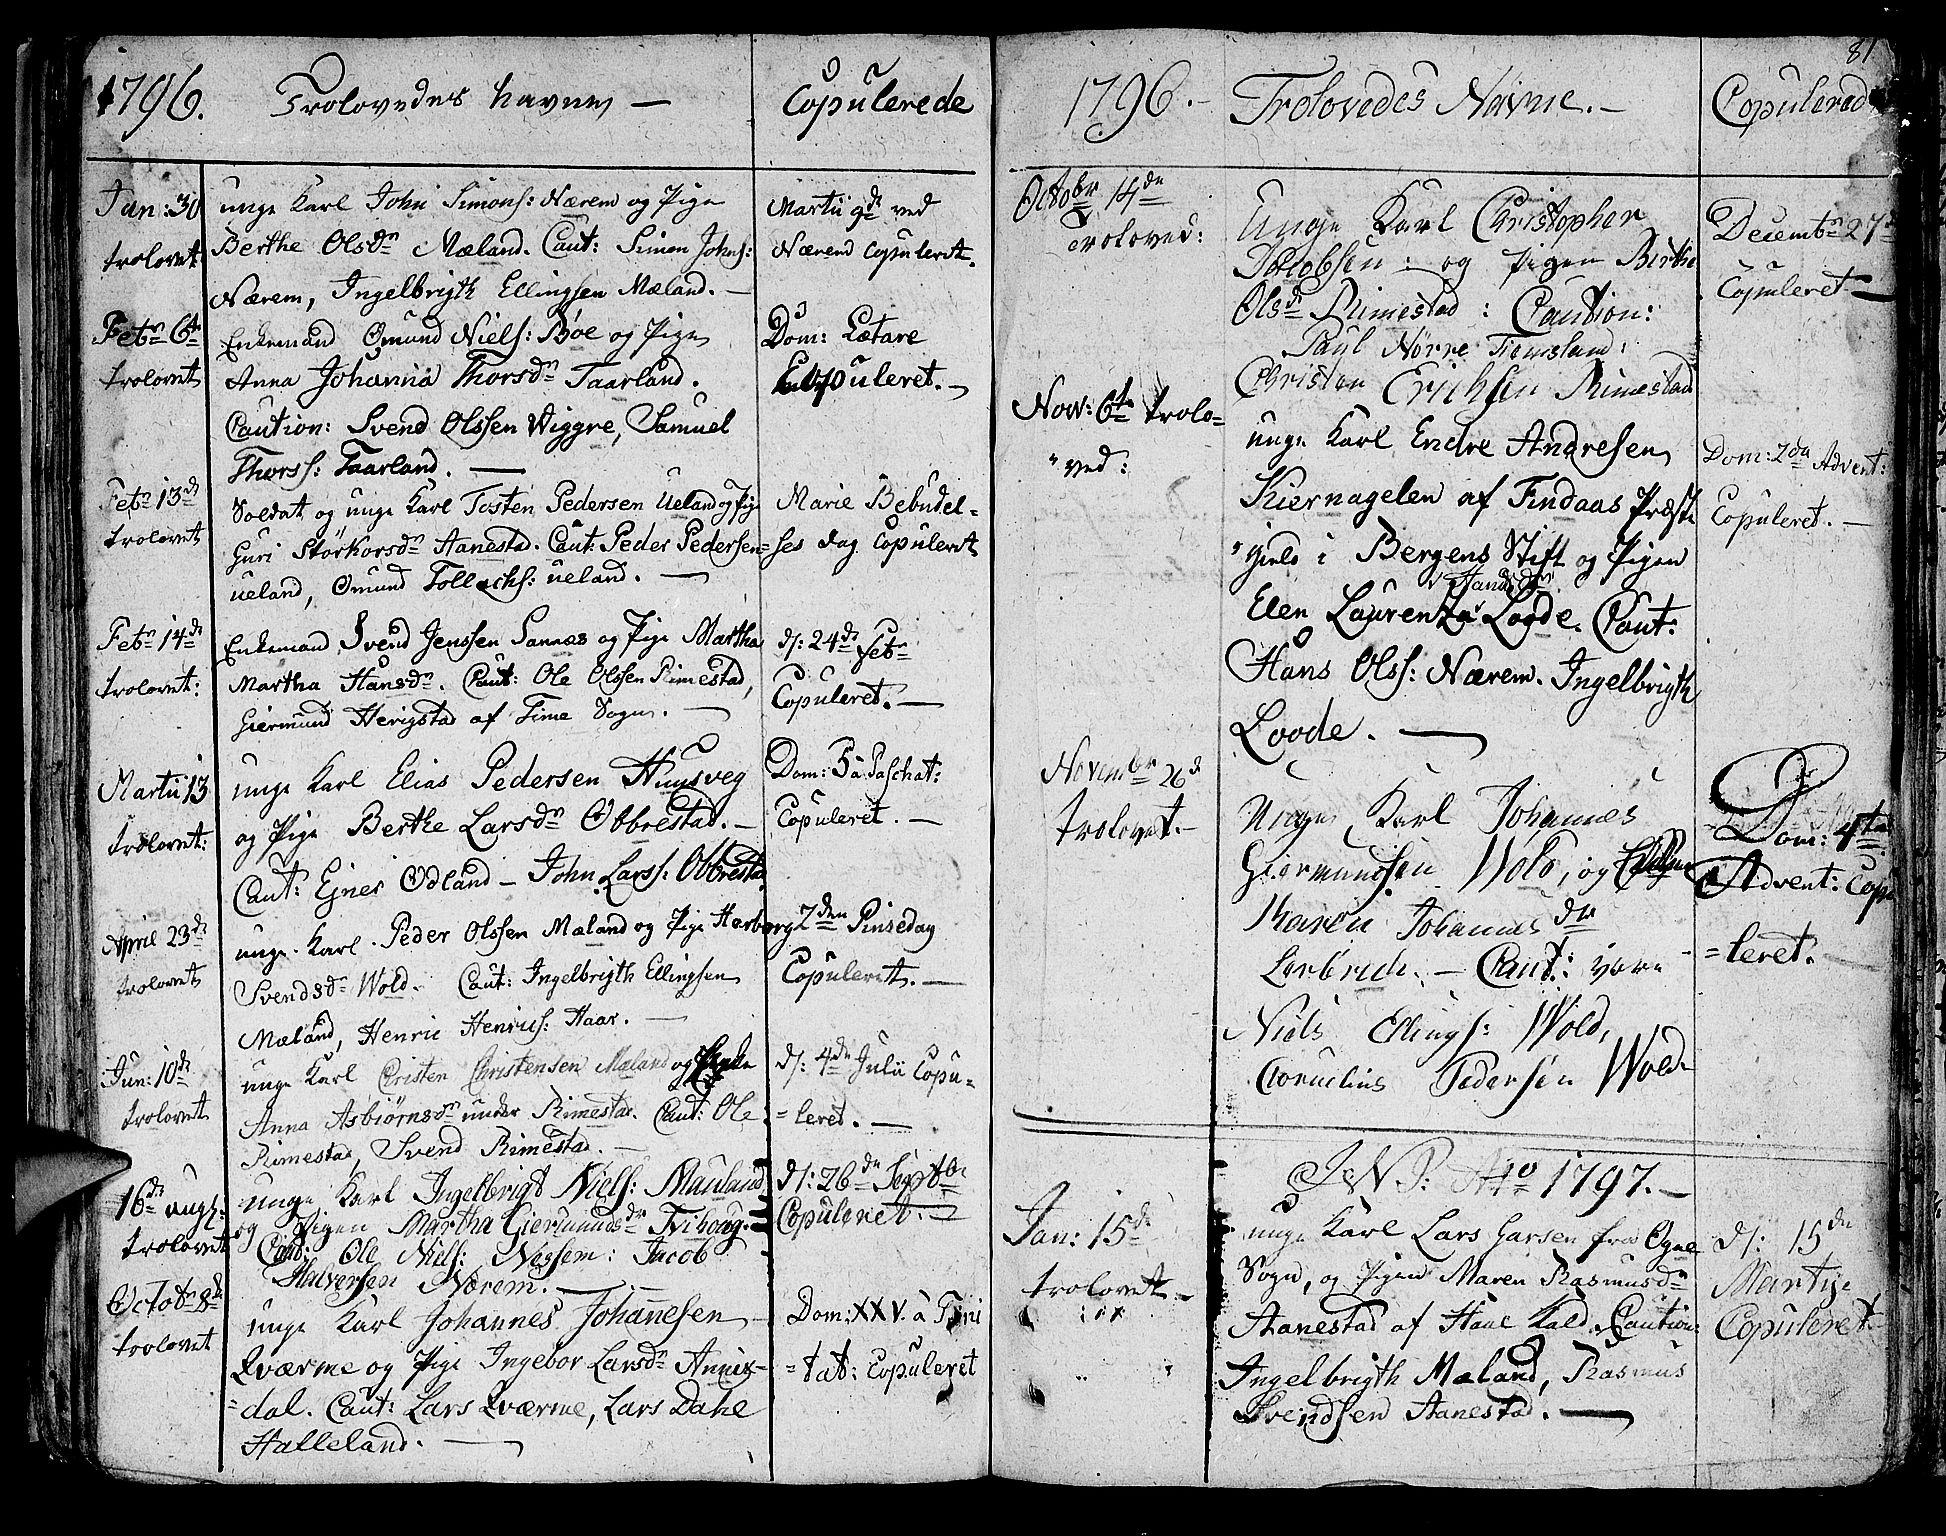 1796. Trolovedes Navne — Copulerede
Jan: 30 trolovet
unge Karl John Simons: Nærem og Pige
Berthe Olsdr Mæland. Caut: Simon Johns:
Nærem, Ingelbrigth Ellingsen Mæland. —
Martii 9de ved
Nærem Copuleret.
Febr 6te trolovet
Enkemand Omund Niels: Bøe og Pige
Anna Johanna Thorsdr Taarland.
Caution: Svend Olssen Wiggre, Samuel
Thorss: Taarland. —
Dom: Lætare
Copuleret. —
Febr 13de trolovet
Soldat og unge Karl Tosten Pedersen Ueland og Pige
Guri Storkorsdr Aanestad. Caut: Peder Pedersen
Ueland, Omund Tollachs: Ueland. —
Marie Bebudel-
=ses dag Copuleret
Febr 14de trolovet:
Enkemand Svend Jenssen Sannæs og Pige Martha
Martha Hansdr. Caut: Ole Olssen Rimestad,
Giermund Herigstad af Time Sogn. —
d: 24de Febr
Copuleret. —
Martii 13 trolovet:
unge Karl Elias Pedersen Huusveg
og Pige Berthe Larsdr Obbrestad. —
Caut: Ejner Odland — John Larss: Obbrestad
Dom: 5 a Paschat:
Copuleret. —
April 23de trolovet
unge Karl Peder Olssen Mæland og Pige Herborg
Svendsdr Wold. Caut: Ingelbrigth Ellingsen
Mæland, Henric Henrics: Haar. —
2den Pinsedag
Copuleret. —
Jun: 10de trolovet
unge Karl Cristen Christensen Mæland og Enke
Anna Asbiørnsdr under Rimestad. Caut: Ole
Rimestad, Svend Rimestad. —
d: 4de Julii Copu-
=leret. —
16de augs: trolovet
unge Karl Ingelbrigt Niels: Mauland
og Pigen Martha Giermundsdr
Caut: Ole Niels: Nessem: Jacob
Halversen Nærem. —
d: 26de Septbr
Copuleret. —
Octobr 8de trolovet
unge Karl Johannes Johannesen
Qværme og Pige Ingebor Larsdr Annix-
=dal. Caut: Lars Qværme, Lars Dahle
Halleland. —
Dom: XXV. a Trini
=tat: Copuleret
81
1796. — Trolovedes Navne. — Copulered
Octobr 14de
Troloved:
Unge Karl Christopher
Jacobsen og Pigen Birthe
Olsdr Rimestad: Caution:
Paul Nørre
Christen Erichsen Rimestad
Decembr 27de
Copuleret —
Nov: 6te trolo-
=ved:
unge Karl Endre Andresen
Kiernagelen af Findaas Præste
=gield i Bergens Stift og Pigen
Hansdr
Elen Laurenza Loode. Caut:
Hans Olss: Nærem. Ingelbrigth
Loode. —
Dom: 2da Advent:
Copuleret. —
Novembr 26de
trolovet. —
Unge Karl Johannes
Giermundsen Wold, og
Karen Johannesdr
— Caut: vare
Niels Ellings: Wold,
Cornelius Pedersen Wold
Dom: 4ta
Advent: Copu
=leret.
J. N. J. Ao 1797. —
Jan: 15de
trolovet —
unge Karl Lars Garsen fra Ogne
Sogn, og Pigen Maren Rasmusdr
Aanestad af Haae Kald. Caution:
Ingelbrigth Mæland, Rasmus
Svendsen Aanestad. —
d: 15de
Martye
Copuleret. —